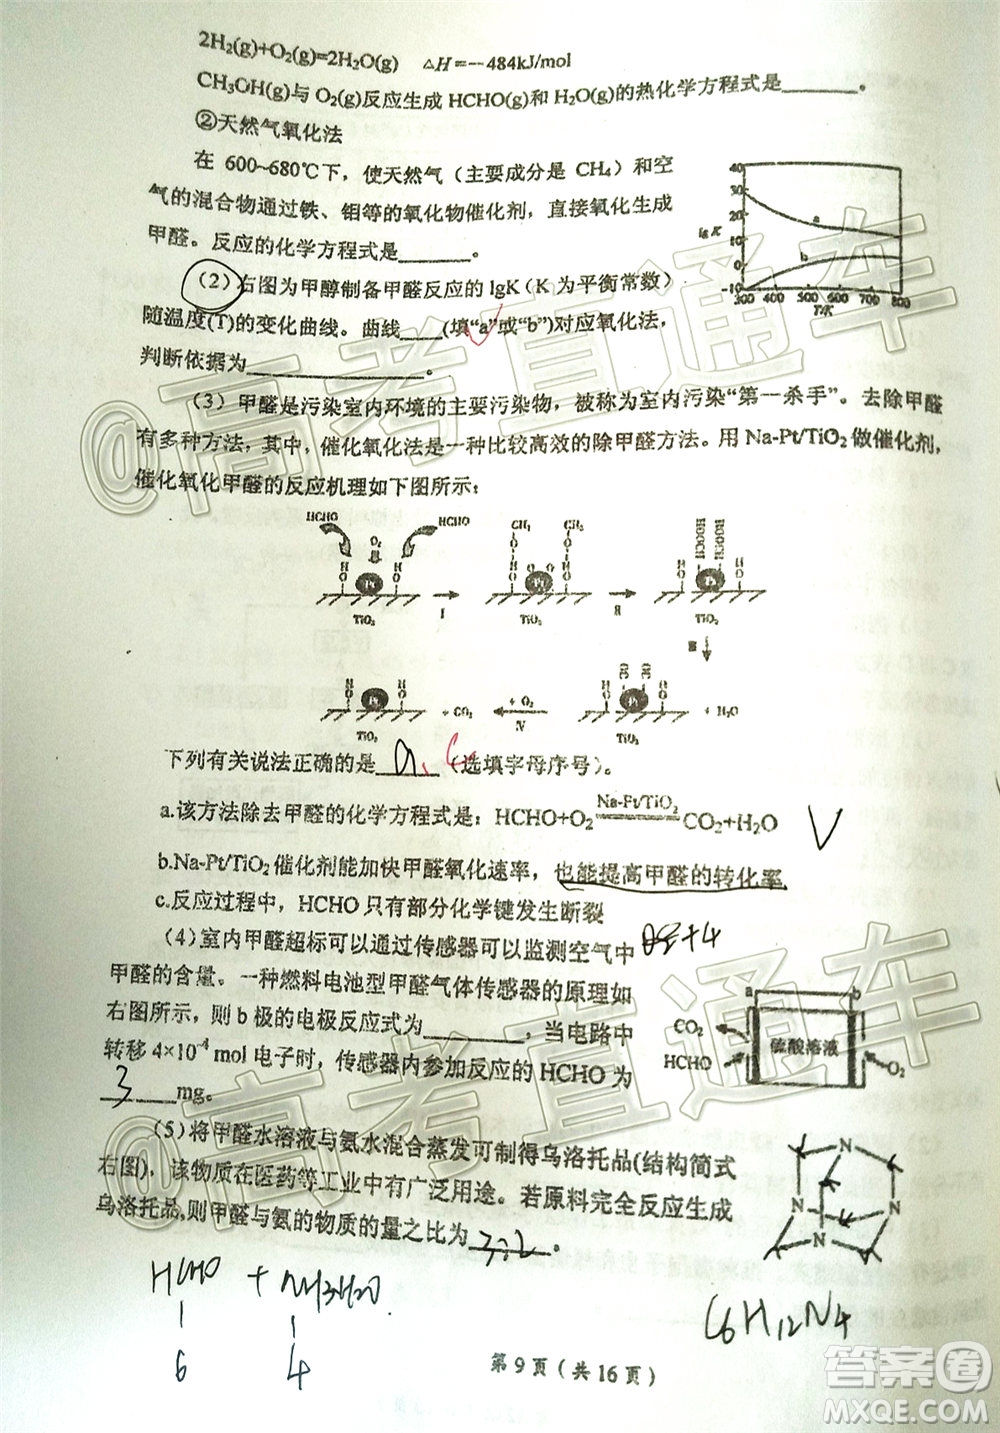 2H₂(g)+O₂(g)=2H₂O(g) △H=−484kJ/mol
CH₃OH(g)与 O₂(g)反应生成 HCHO(g)和 H₂O(g)的热化学方程式是________。
②天然气氧化法
在 600~680℃下，使天然气（主要成分是 CH₄）和空
气的混合物通过铁、钼等的氧化物催化剂，直接氧化生成
甲醛。反应的化学方程式是________。
40
30
20
lg K
10
0
-10
a
b
300 400 500 600 700 800
T/K
（2）右图为甲醇制备甲醛反应的 lgK（K 为平衡常数）
随温度(T)的变化曲线。曲线____(填“a”或“b”)对应氧化法，
判断依据为________________。
（3）甲醛是污染室内环境的主要污染物，被称为室内污染“第一杀手”。去除甲醛
有多种方法，其中，催化氧化法是一种比较高效的除甲醛方法。用 Na-Pt/TiO₂ 做催化剂，
催化氧化甲醛的反应机理如下图所示：
HCHO HCHO
O₂
Pt
TiO₂
I
CH₂ CH₂
TiO₂
II
HCOOH HCOOH
TiO₂
III
Pt
TiO₂
+CO₂
+O₂
IV
TiO₂
+H₂O
下列有关说法正确的是 a、c （选填字母序号）。
a.该方法除去甲醛的化学方程式是：HCHO+O₂ Na-Pt/TiO₂ CO₂+H₂O
b.Na-Pt/TiO₂ 催化剂能加快甲醛氧化速率，也能提高甲醛的转化率
c.反应过程中，HCHO 只有部分化学键发生断裂
（4）室内甲醛超标可以通过传感器可以监测空气中
+4
甲醛的含量。一种燃料电池型甲醛气体传感器的原理如
右图所示，则 b 极的电极反应式为__________，当电路中
转移 4×10⁻⁴ mol 电子时，传感器内参加反应的 HCHO 为
3 mg。
a b
CO₂
HCHO
硫酸溶液
O₂
（5）将甲醛水溶液与氨水混合蒸发可制得乌洛托品(结构简式
右图)，该物质在医药等工业中有广泛用途。若原料完全反应生成
乌洛托品,则甲醛与氨的物质的量之比为 3:2 。
N
N
N
N
HCHO + NH3·H2O
6 4
C6H12N4
第 9 页（共 16 页）
@高考直通车
@高考直通车
答案圈
MXQE.COM